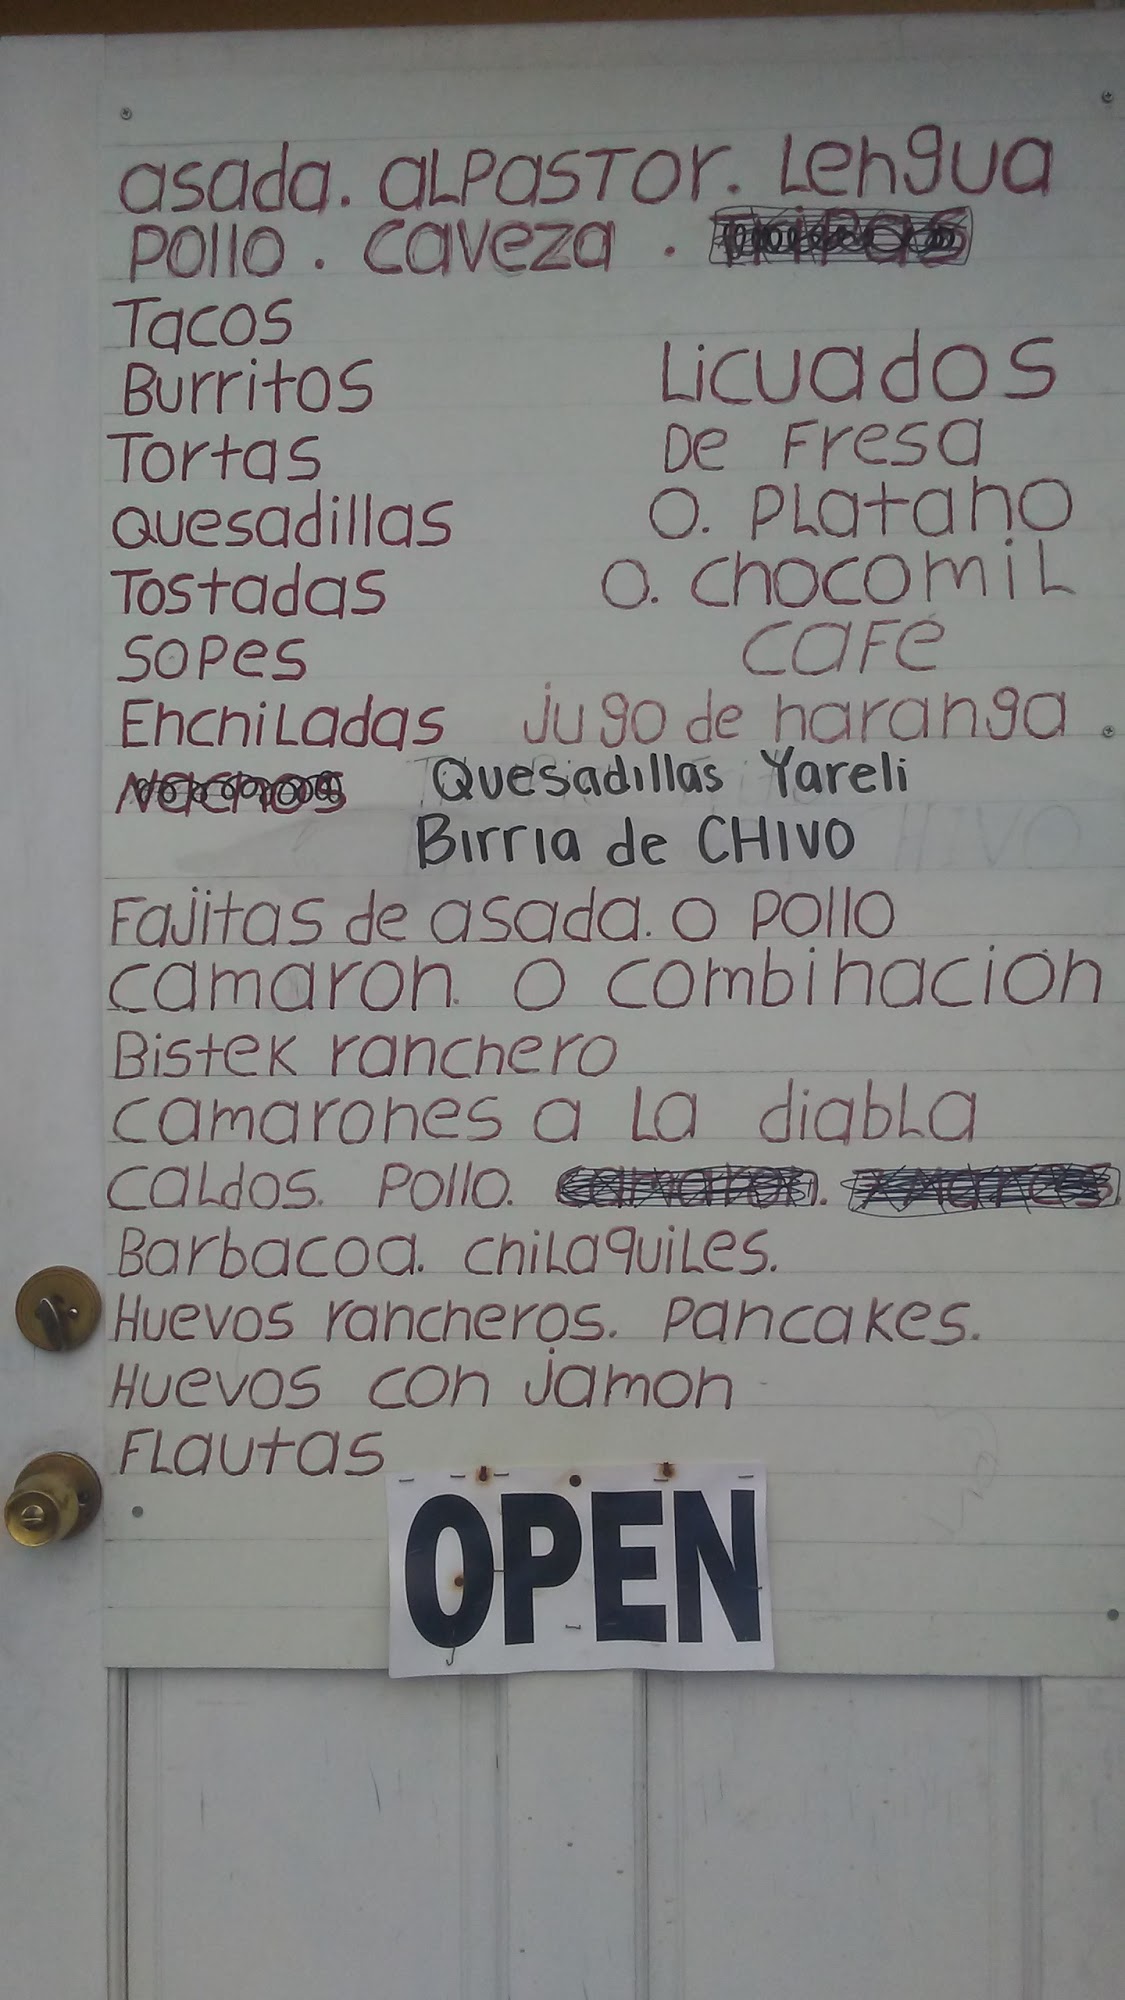 asada. aLPasTor. Lengua
Pollo. caveza.
Tacos
Burritos
Tortas
Quesadillas
Tostadas
Sopes
EnchiLadas
Licuados
De Fresa
O. PLatano
O. chocomiL
CaFe
jugo de naranga.
Nachos
Quesadillas Yareli
Birria de CHIVO
Fajitas de asada. o pollo
camaron. o combinacion
Bistek ranchero
camarones a La diabLa
caLdos. Pollo.
Barbacoa. chiLaquiLes.
Huevos rancheros. Pancakes.
Huevos con jamon
FLautas
OPEN